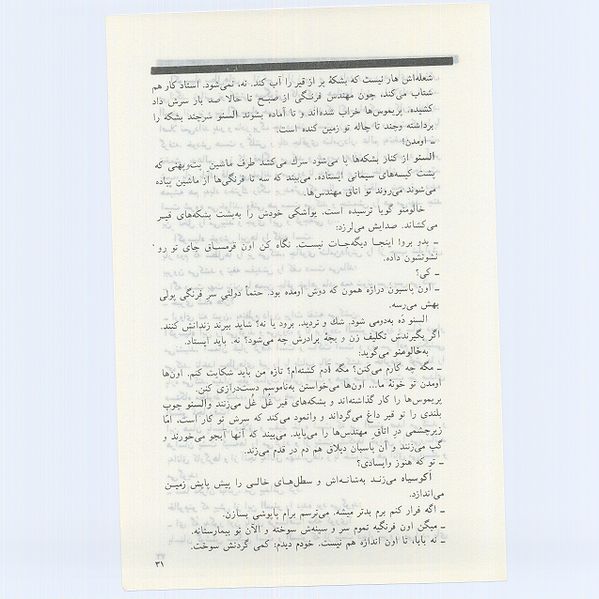 شعله‌اش هار نیست که بشکهٔ پر از قیر را آب کند. نه، نمی‌شود. استاد کار هم
شتاب می‌کند، چون مهندس فرنگی از صبح تا حالا صد بار سرش داد
کشیده. پریموس‌ها خراب شده‌اند و تا آماده بشوند السنو سرچند بشکه را
برداشته وچند تا چاله تو زمین کنده است.
ـ اومدن!
السنو از کنار بشکه‌ها پا می‌شود سرك می‌کشد طرف ماشین پت‌وپهنی که
پشت کیسه‌های سیمانی ایستاده. می‌بیند که سه تا فرنگی‌ها از ماشین پیاده
می‌شوند می‌روند تو اتاق مهندس‌ها.
خالومنو گویا ترسیده است. یواشکی خودش را به‌پشت بشکه‌های قیر
می‌کشاند. صدایش می‌لرزد:
ـ بدو برو! اینجا دیگه‌جات نیست. نگاه کن اون قرمساق جای تو رو
نشونشون داده.
ـ کی؟
ـ اون پاسبون درازه همون که دوش اومده بود. حتماً دولتی سر فرنگی پولی
بهش می‌رسه.
السنو ده به‌دومی شود. شك و تردید. برود یا نه؟ شاید ببرند زندانش کنند.
اگر بگیرندش تکلیف زن و بچهٔ برادرش چه می‌شود؟ نه. باید ایستاد.
به‌خالومنو می‌گوید:
ـ مگه چه کارم می‌کنن؟ مگه آدم کشته‌ام؟ تازه من باید شکایت کنم. اون‌ها
اومدن تو خونهٔ ما... اون‌ها می‌خواستن به‌ناموسم دست‌درازی کنن.
پریموس‌ها را کار گذاشته‌اند و بشکه‌های قیر غُل غُل می‌زنند والسنو چوب
بلندی را تو قیر داغ می‌گرداند و وانمود می‌کند که سرش تو کار است. امّا
زیرچشمی در اتاق مهندس‌ها را می‌پاید. می‌بیند که آنها آبجو می‌خورند و
گپ می‌زنند و آن پاسبان دیلاق هم دم در قدم می‌زند.
ـ تو که هنوز وایسادی؟
آکوسیاه می‌زند به‌شانه‌اش و سطل‌های خالی را پیش پایش زمین
می‌اندازد.
ـ اگه فرار کنم برم بدتر میشه. می‌ترسم برام پاپوشی بسازن.
ـ میگن اون فرنگیه تموم سر و سینه‌ش سوخته و الآن تو بیمارستانه.
ـ نه بابا، تا اون اندازه هم نیست. خودم دیدم؛ کمی گردنش سوخت.
۳۱